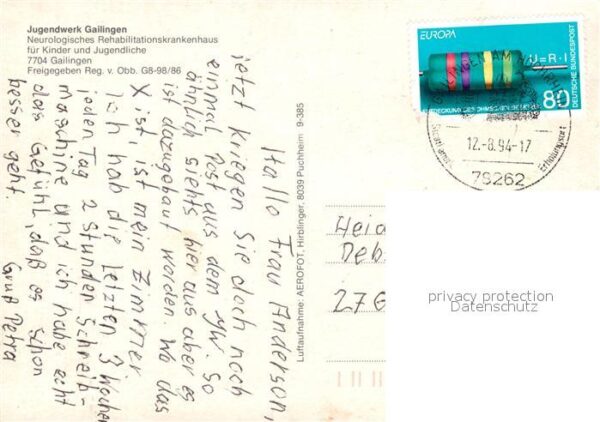 Jugendwerk Gailingen
Neurologisches Rehabilitationskrankenhaus
für Kinder und Jugendliche
7704 Gailingen
Freigegeben Reg. v. Obb. G8-98/86
Hallo Frau Anderson,
jetzt kriegen Sie doch noch
einmal Post aus dem JW. So
ähnlich siehts hier aus aber es
ist dazugebaut worden. Wo das
X ist, ist mein Zimmer
Ich hab die letzten 3 Wochen
jeden Tag 2 Stunden Schreib-
maschine und ich habe echt
das Gefühl, daß es schon
besser geht.
Gruß Petra
Luftaufnahme: AEROFOT, Hirblinger, 8039 Puchheim 9-385
EUROPA
U=R·I
80
DEUTSCHE BUNDESPOST
12.-8.94-17
78262
Heid
Deb
27
privacy protection
Datenschutz